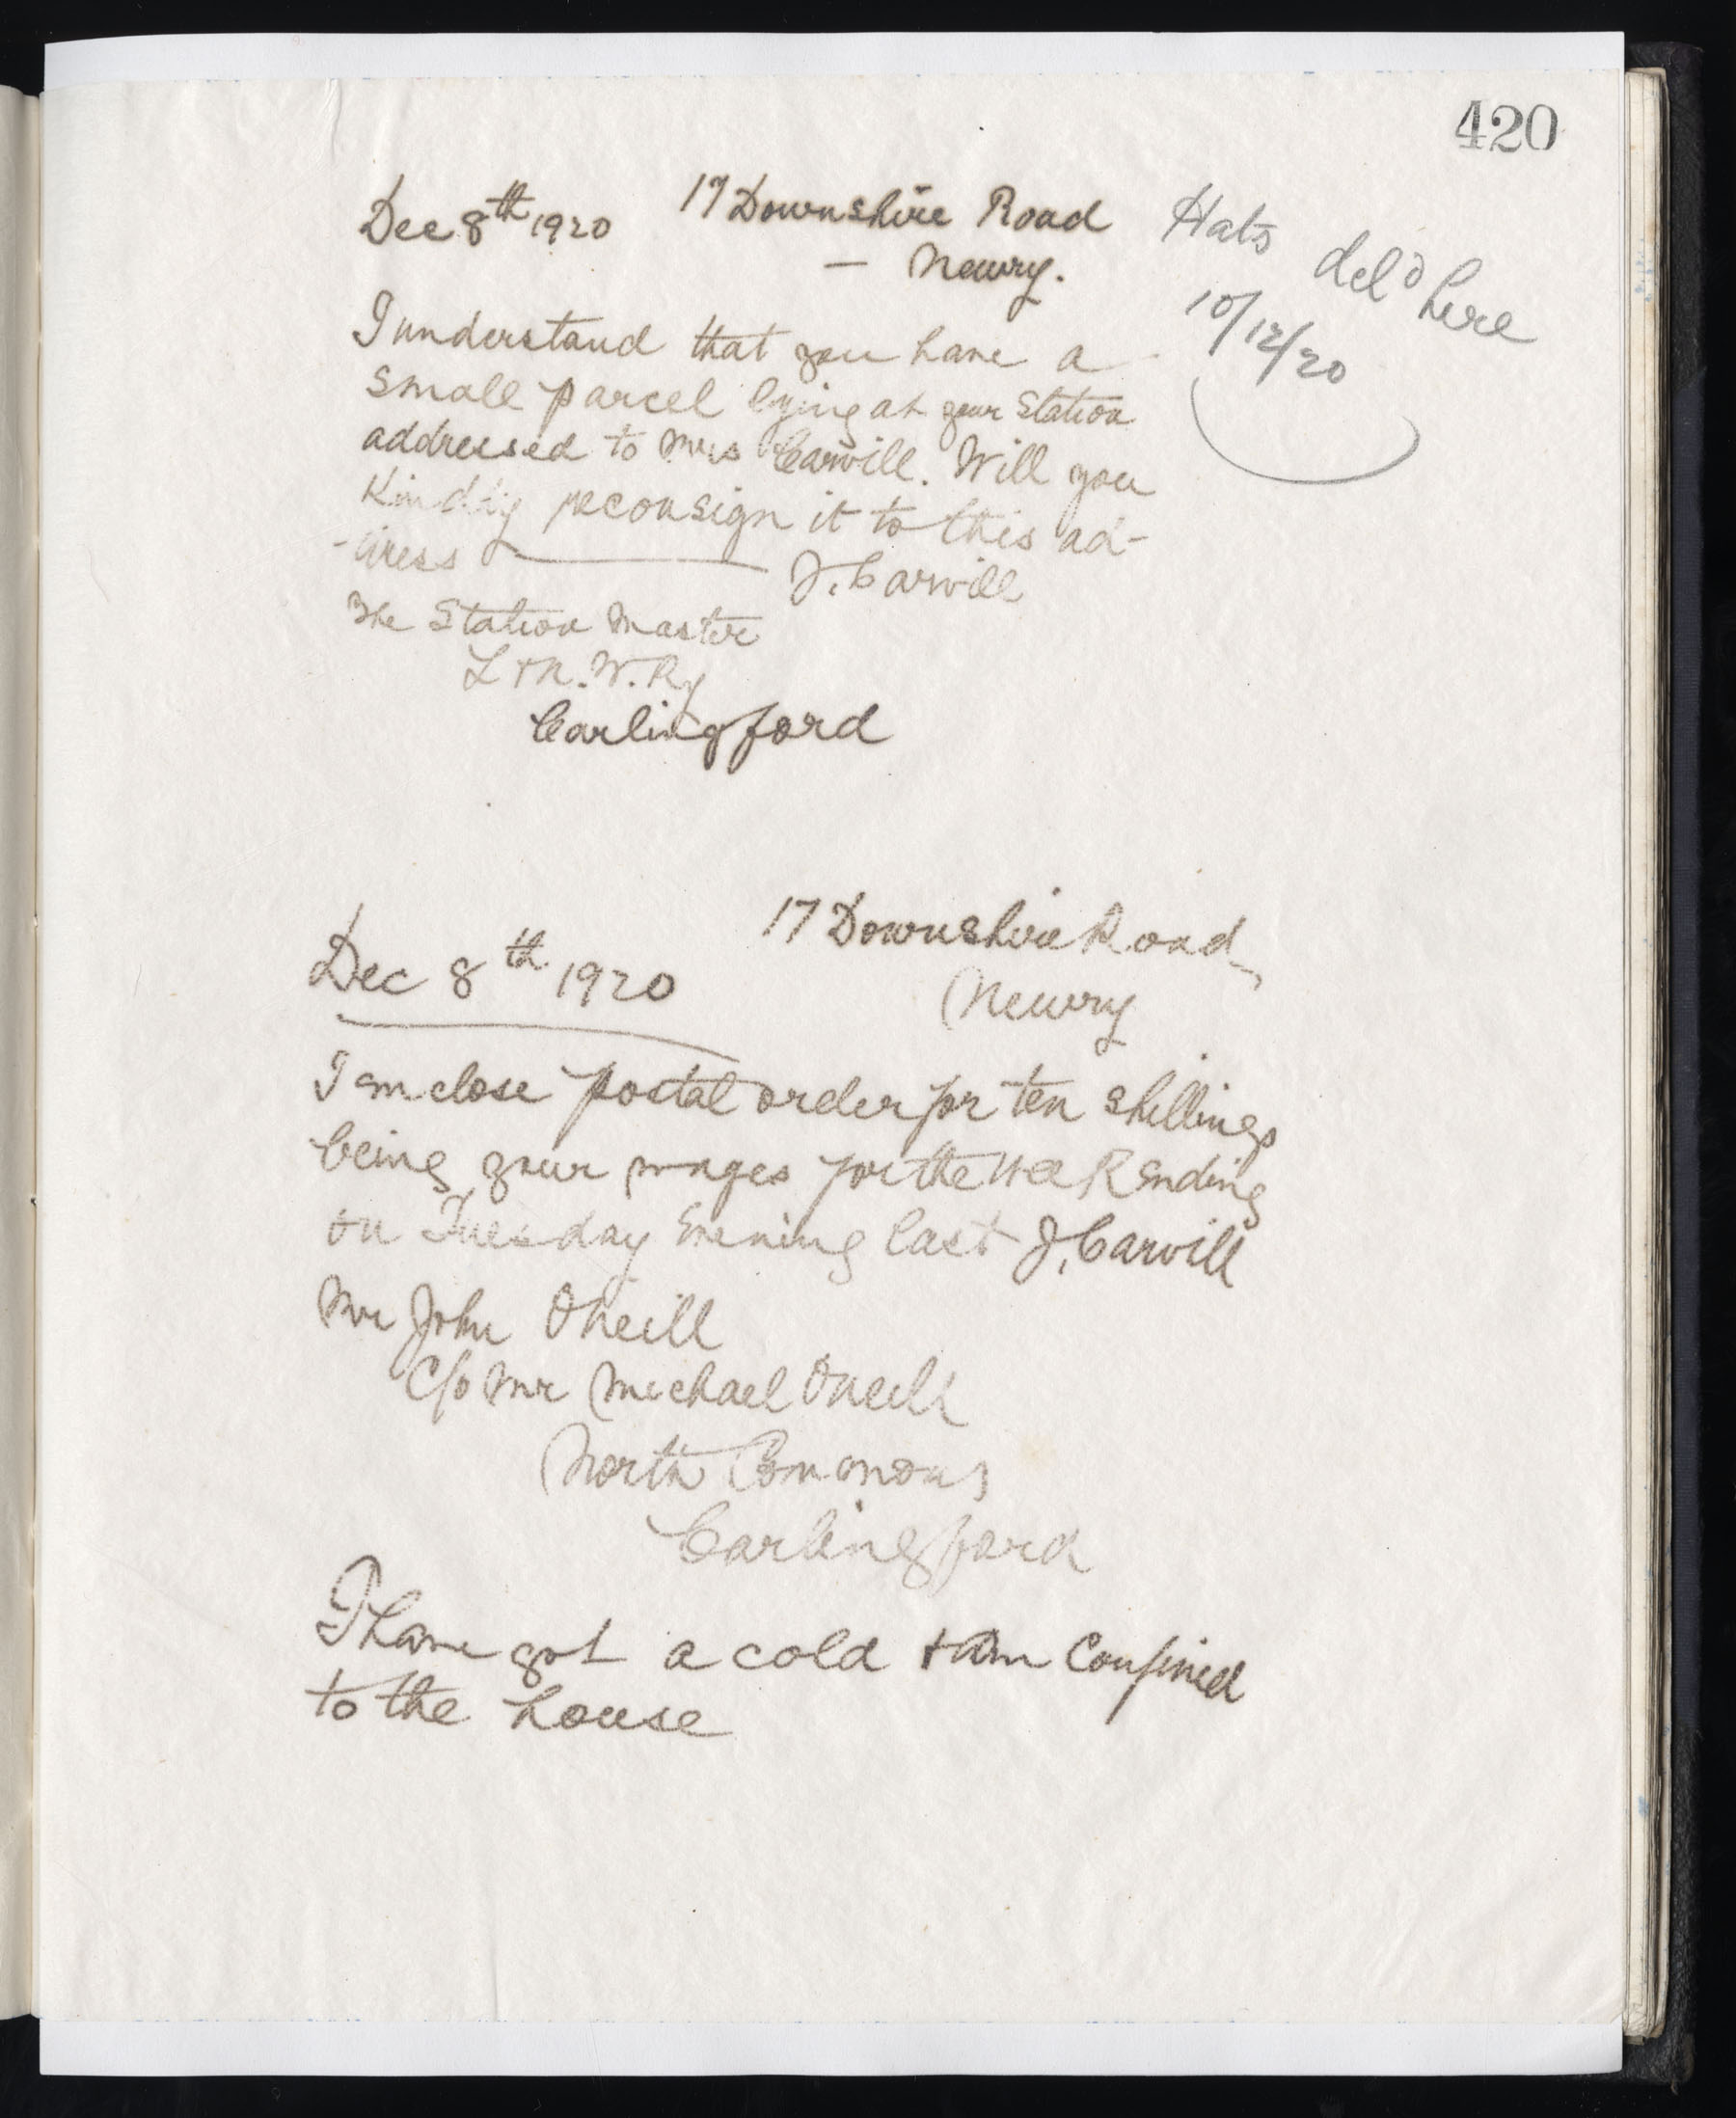 420
Dec 8th 1920 17 Downshire Road
— Newry.
Hats del'd here
10/12/20
I understand that you have a
small parcel lying at your Station
addressed to Mrs Carvill. Will you
Kindly reconsign it to this ad-
-dress — J. Carvill
The Station Master
L & N. W. Ry
Carlingford
17 Downshire Road,
Dec 8th 1920
Newry
I enclose postal order for ten shillings
being your wages for the week Ending
on Tuesday Evening last J. Carvill
Mr John ONeill
C/o Mr Michael ONeill
North Commons
Carlingford
I have got a cold & am Confined
to the house